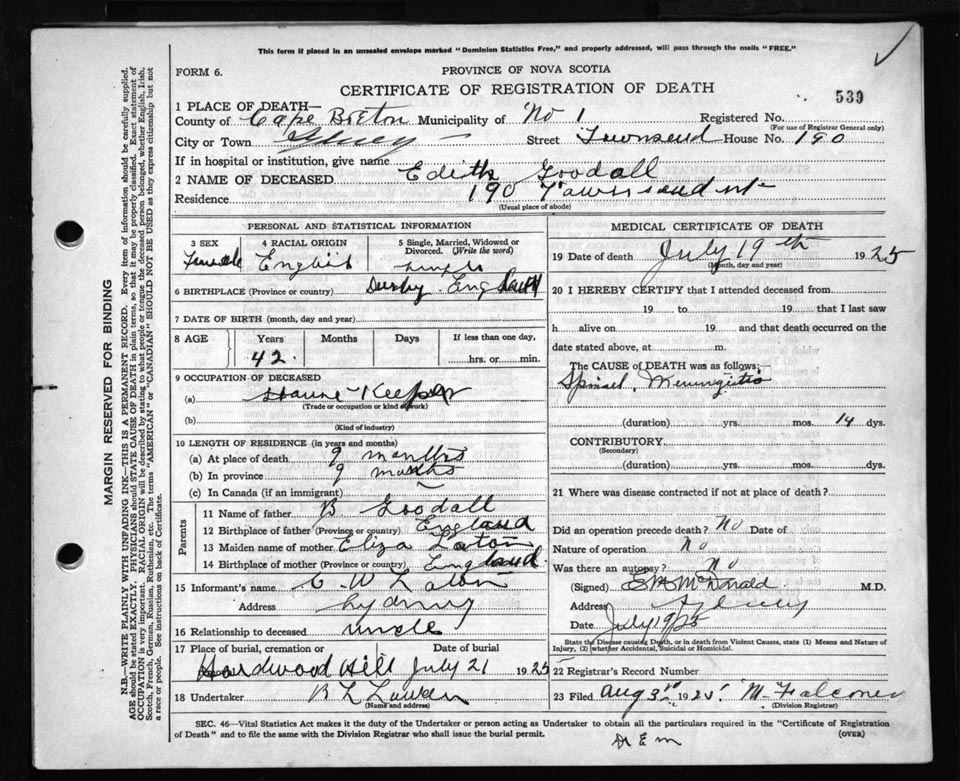 This form if placed in an unsealed envelope marked "Dominion Statistics Free," and properly addressed, will pass through the mails "FREE."
FORM 6.
PROVINCE OF NOVA SCOTIA
CERTIFICATE OF REGISTRATION OF DEATH
539
1 PLACE OF DEATH—
County of Cape Breton Municipality of No 1 Registered No.
(For use of Registrar General only)
City or Town Sydney Street Townsend House No. 190
If in hospital or institution, give name
2 NAME OF DECEASED Edith Goodall
Residence 190 Townsend
(Usual place of abode)
PERSONAL AND STATISTICAL INFORMATION
3 SEX 4 RACIAL ORIGIN 5 Single, Married, Widowed or Divorced. (Write the word)
Female English Single
6 BIRTHPLACE (Province or country) Derby England
7 DATE OF BIRTH (month, day and year)
8 AGE Years Months Days If less than one day,
42 hrs. or min.
9 OCCUPATION OF DECEASED
(a) House Keeper
(Trade or occupation or kind of work)
(b)
(Kind of industry)
10 LENGTH OF RESIDENCE (in years and months)
(a) At place of death 9 months
(b) In province 9 months
(c) In Canada (if an immigrant)
Parents
11 Name of father B Goodall
12 Birthplace of father (Province or country) England
13 Maiden name of mother Eliza
14 Birthplace of mother (Province or country) England
15 Informant's name C W
Address Sydney
16 Relationship to deceased uncle
17 Place of burial, cremation or Date of burial
Hardwood Hill July 21 1925
18 Undertaker
(Name and address)
MEDICAL CERTIFICATE OF DEATH
19 Date of death July 19th 1925
(Month, day and year)
20 I HEREBY CERTIFY that I attended deceased from
19 to 19 that I last saw
h alive on 19 and that death occurred on the
date stated above, at m.
The CAUSE OF DEATH was as follows:
Spinal Meningitis
(duration) yrs. mos. 14 dys.
CONTRIBUTORY.
(Secondary)
(duration) yrs. mos. dys.
21 Where was disease contracted if not at place of death?
Did an operation precede death? No Date of
Nature of operation No
Was there an autopsy? No
(Signed) McDonald M.D.
Address Sydney
Date July 19/25
State the Disease causing Death, or in death from Violent Causes, state (1) Means and Nature of Injury, (2) whether Accidental, Suicidal or Homicidal.
22 Registrar's Record Number
23 Filed Aug 3rd 1925 M. Falconer
(Division Registrar)
SEC. 46—Vital Statistics Act makes it the duty of the Undertaker or person acting as Undertaker to obtain all the particulars required in the "Certificate of Registration
of Death" and to file the same with the Division Registrar who shall issue the burial permit.
(OVER)
MARGIN RESERVED FOR BINDING
N.B.—WRITE PLAINLY WITH UNFADING INK—THIS IS A PERMANENT RECORD. Every item of information should be carefully supplied.
AGE should be stated EXACTLY. PHYSICIANS should STATE CAUSE OF DEATH in plain terms, so that it may be properly classified. Exact statement of
OCCUPATION is very important. RACIAL ORIGIN will be described by stating to what people or tongue the deceased person belonged, whether English, Irish,
Scotch, French, German, Russian, Ruthenian, etc. The terms "AMERICAN" or "CANADIAN" SHOULD NOT BE USED as they express citizenship but not
a race or people. See instructions on back of Certificate.